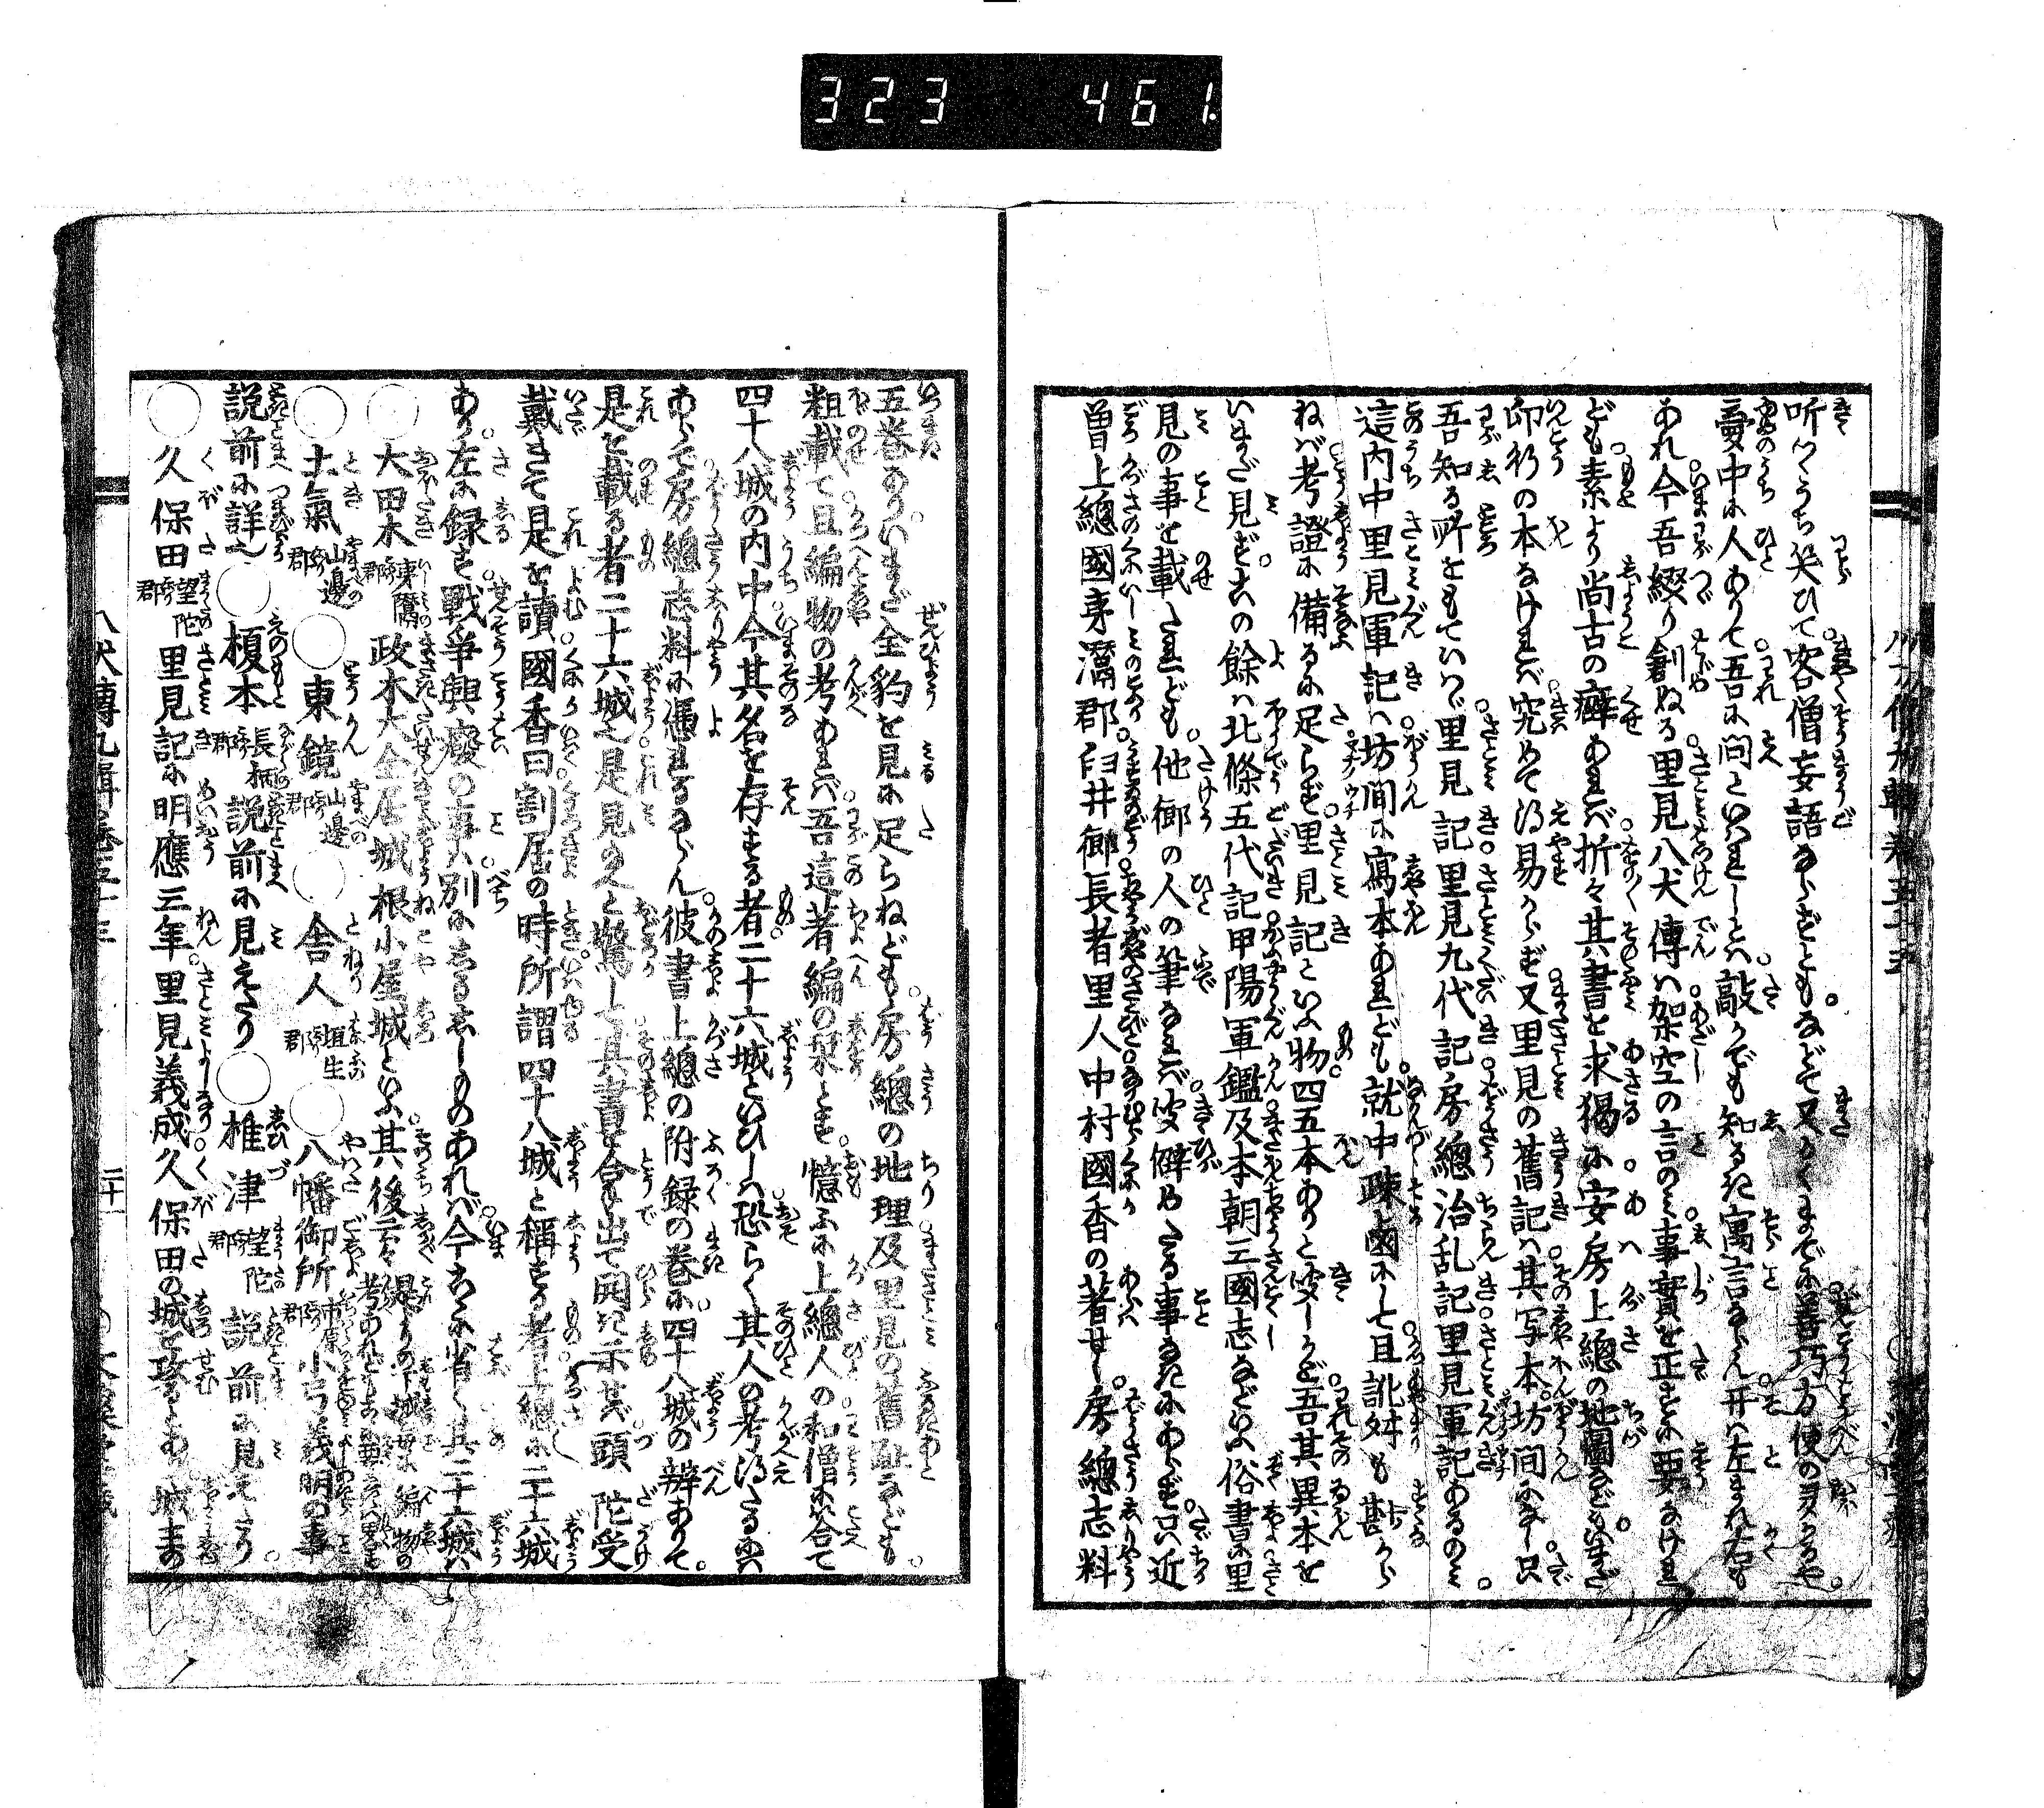 323 461.
听つゝうち笑ひて客僧妄語ならずともなどて又かくまでに善巧方便の
夢中に人ありて吾に問といはれしとは敲かでも知るき寓言ならん开は左まれ右も
あれ今吾綴り創ぬる里見八犬傳は架空の言のみ事實を正すに要なけれ
ども素より尚古の癖あれば折々其書を求獦に安房上總の地圖などいまだ
印行の本なければ究めて得易からず又里見の舊記は其写本坊間になし只
吾知る所をもていはゞ里見記里見九代記房總治乱記里見軍記あるのみ
這内中里見軍記は坊間に寫本あれども就中疎鹵にして且訛舛も尠から
ねば考證に備るに足らず里見記といふ物四五本ありと聞しかど吾其異本を
いまだ見ずこの餘は北條五代記甲陽軍鑑及本朝三國志などいふ俗書に里
見の事を載たれども他郷の人の筆なれば聞僻めたる事なきにあらず只近
曽上總國夷灊郡臼井郷長者里人中村國香の著せし房總志料
五巻ありいまだ全豹を見に足らねども房總の地理及里見の舊趾なども
粗載て且編物の考あれば吾這著編の栞とす憶ふに上總人の和僧に答て
四十八城の内中今其名を存する者二十六城といひしは恐らく其人の考得たるには
あらで房總志料に憑れるならん彼書上總の附録の巻に四十八城の辨ありて
是を載る者二十六城也是見ゟへと驚して其書を合き出て開き示せば頭陀受
戴きて是を讀國香曰割居の時所謂四十八城と稱する者上總に二十六城
あり左に録す戰爭興廢の事は別にしるせしものあれば今こゝに省く其二十六城は
○大田木夷灊郡政木大全居城根小屋城といふ其後云々
○土氣山邊郡○東鏡山邊郡○舎人埴生郡○八幡御所市原郡小弓義明の事
説前に詳也○榎本長柄郡説前に見えたり○椎津望陀郡説前に見えたり
○久保田望陀郡里見記に明應三年里見義成久保田の城を攻るとあり城主の
八犬傳九輯巻五十三